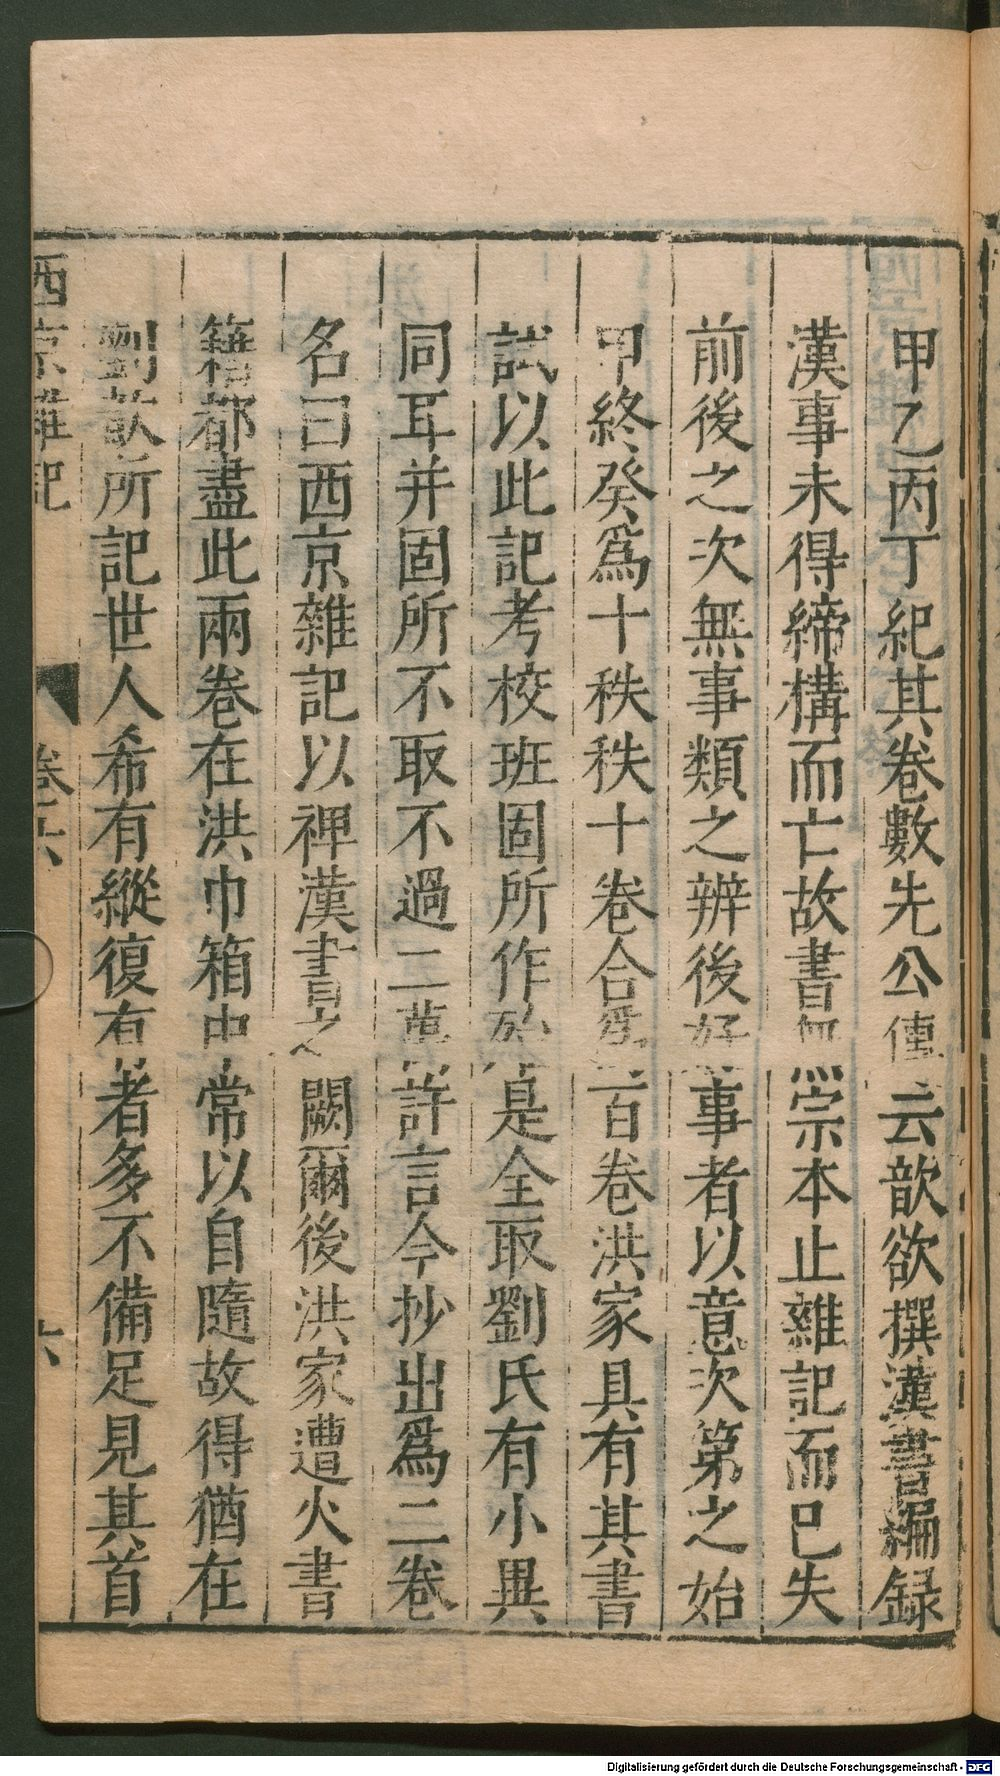 甲乙丙丁紀其卷數先公傳云歆欲撰漢書編録
漢事未得締構而亡故書無宗本止雜記而已失
前後之次無事類之辨後好事者以意次第之始
甲終癸爲十秩秩十卷合爲百卷洪家具有其書
試以此記考校班固所作殆是全取劉氏有小異
同耳并固所不取不過二萬許言今抄出爲二卷
名曰西京雜記以裨漢書之闕爾後洪家遭火書
籍都盡此兩卷在洪巾箱中常以自隨故得猶在
劉歆所記世人希有縱復有者多不備足見其首
西京雜記
卷六
六
Digitalisierung gefördert durch die Deutsche Forschungsgemeinschaft - DFG